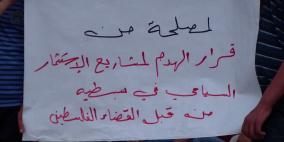 لمصلحة من
قرار الهدم لمشاريع الإستثمار
السياحي في سبسطيه
من قبل القضاء الفلسطيني